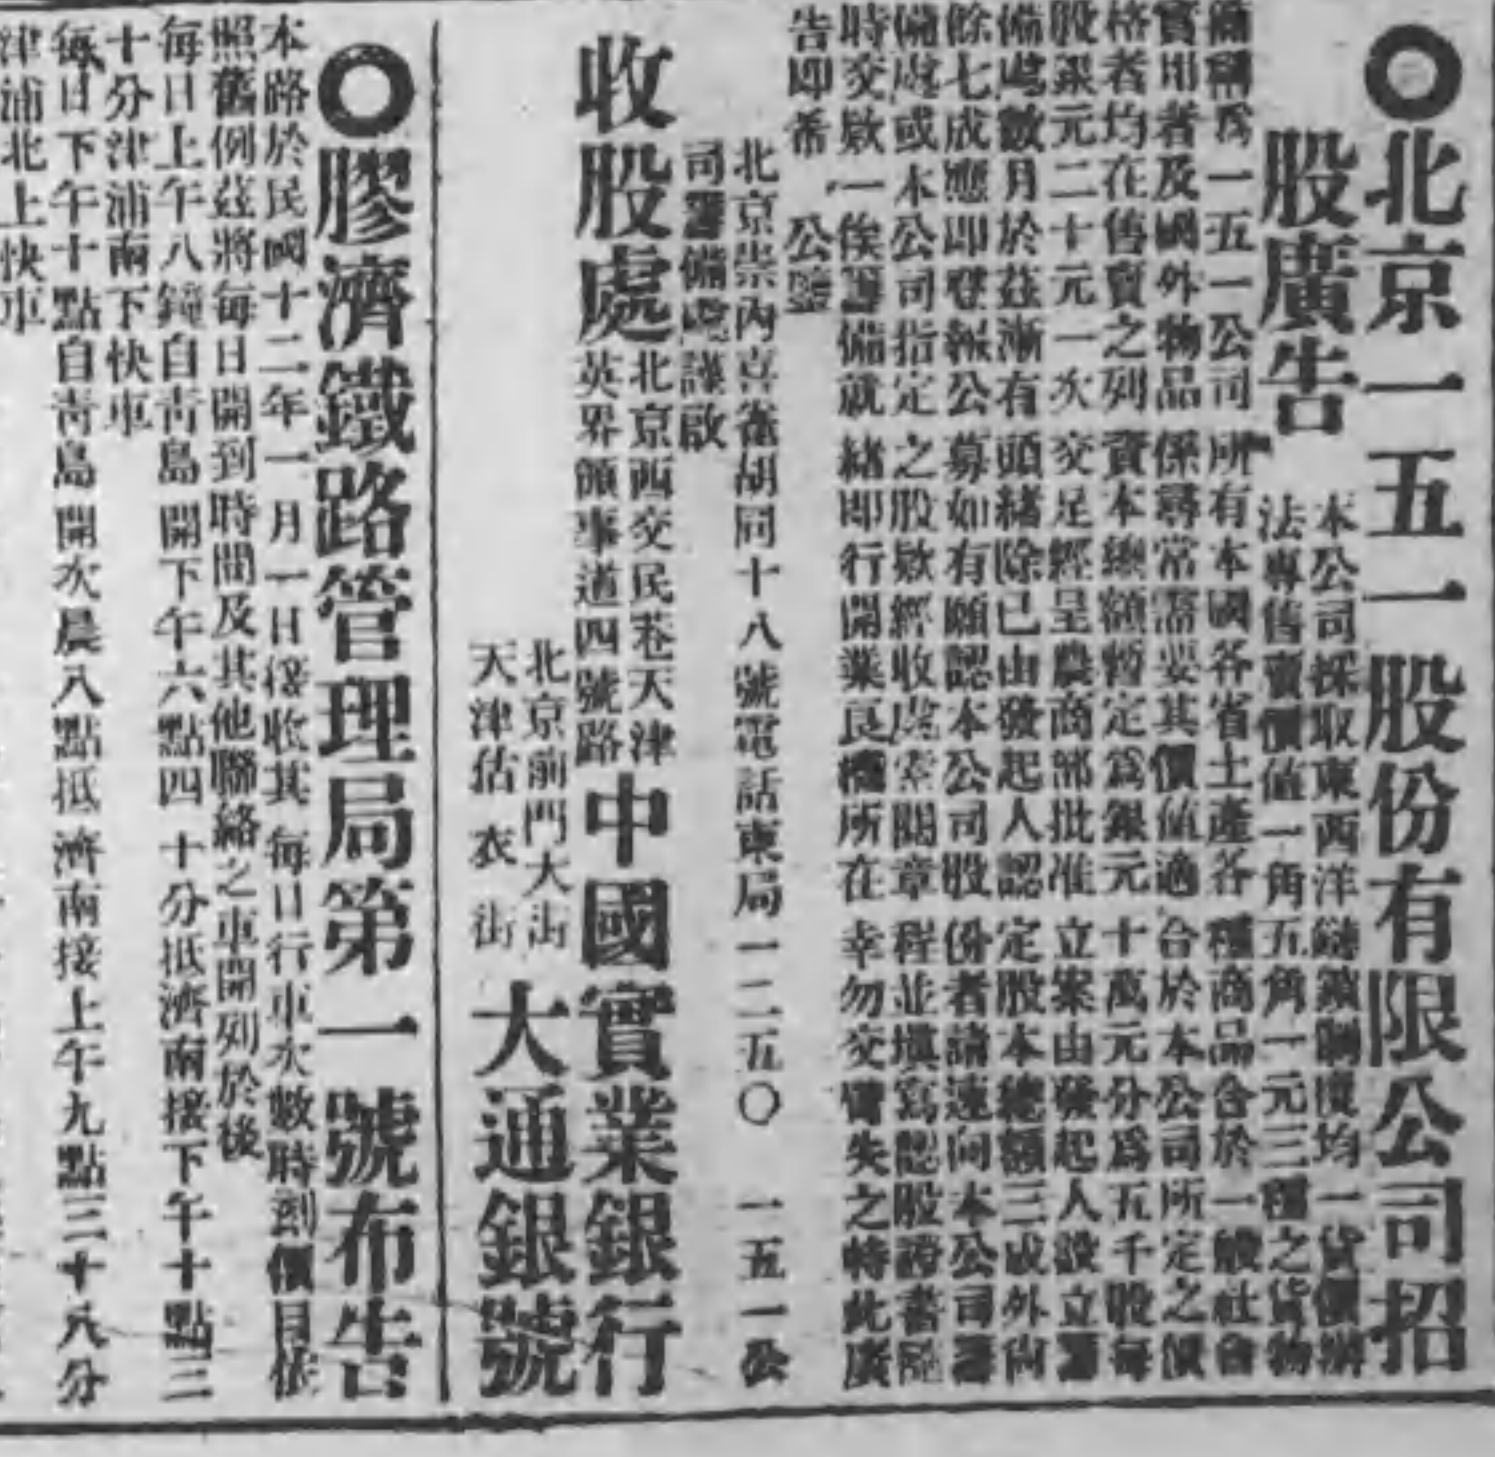 ◯北京一五一股份有限公司招
股廣告
本公司採取東西洋鏈鎖均一貨價辦
法專售賣價值一角五角一元三種之貨物
爲一五一公司所有本國各省土產各種商品合於一般社會
實用者及國外物品係尋常需要其價值適合於本公司所定之價
格者均在售賣之列資本總額暫定爲銀元十萬元分爲五千股每
股銀元二十元一次交足經呈農商部批准立案由發起人設立籌
備處數月於茲漸有頭緒除已由發起人認定股本總額三成外尙
餘七成應即登報公募如有願認本公司股份者請速向本公司籌
備處或本公司指定之股欵經收處索閱章程並塡寫認股證書隨
時交欵一俟籌備就緒即行開業良機所在幸勿交臂失之特此廣
告即希 公鑒
北京崇內喜雀胡同十八號電話東局一二五〇 一五一公
司籌備處謹啟
收股處
北京西交民巷天津
英界領事道四號路
中國實業銀行
北京前門大街
天津估衣街
大通銀號
◯膠濟鐵路管理局第一號布告
本路於民國十二年一月一日接收其每日行車次數時刻價目依
照舊例茲將每日開到時間及其他聯絡之車開列於後
每日上午八鐘自靑島開下午六點四十分抵濟南接下午十點三
十分津浦南下快車
每日下午十點自靑島開次晨八點抵濟南接上午九點三十八分
津浦北上快車